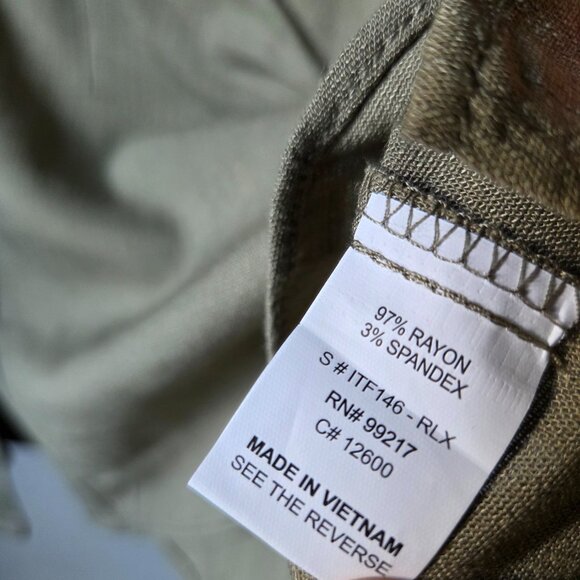 97% RAYON
3% SPANDEX
S # ITF146 - RLX
RN# 99217
C# 12600
MADE IN VIETNAM
SEE THE REVERSE